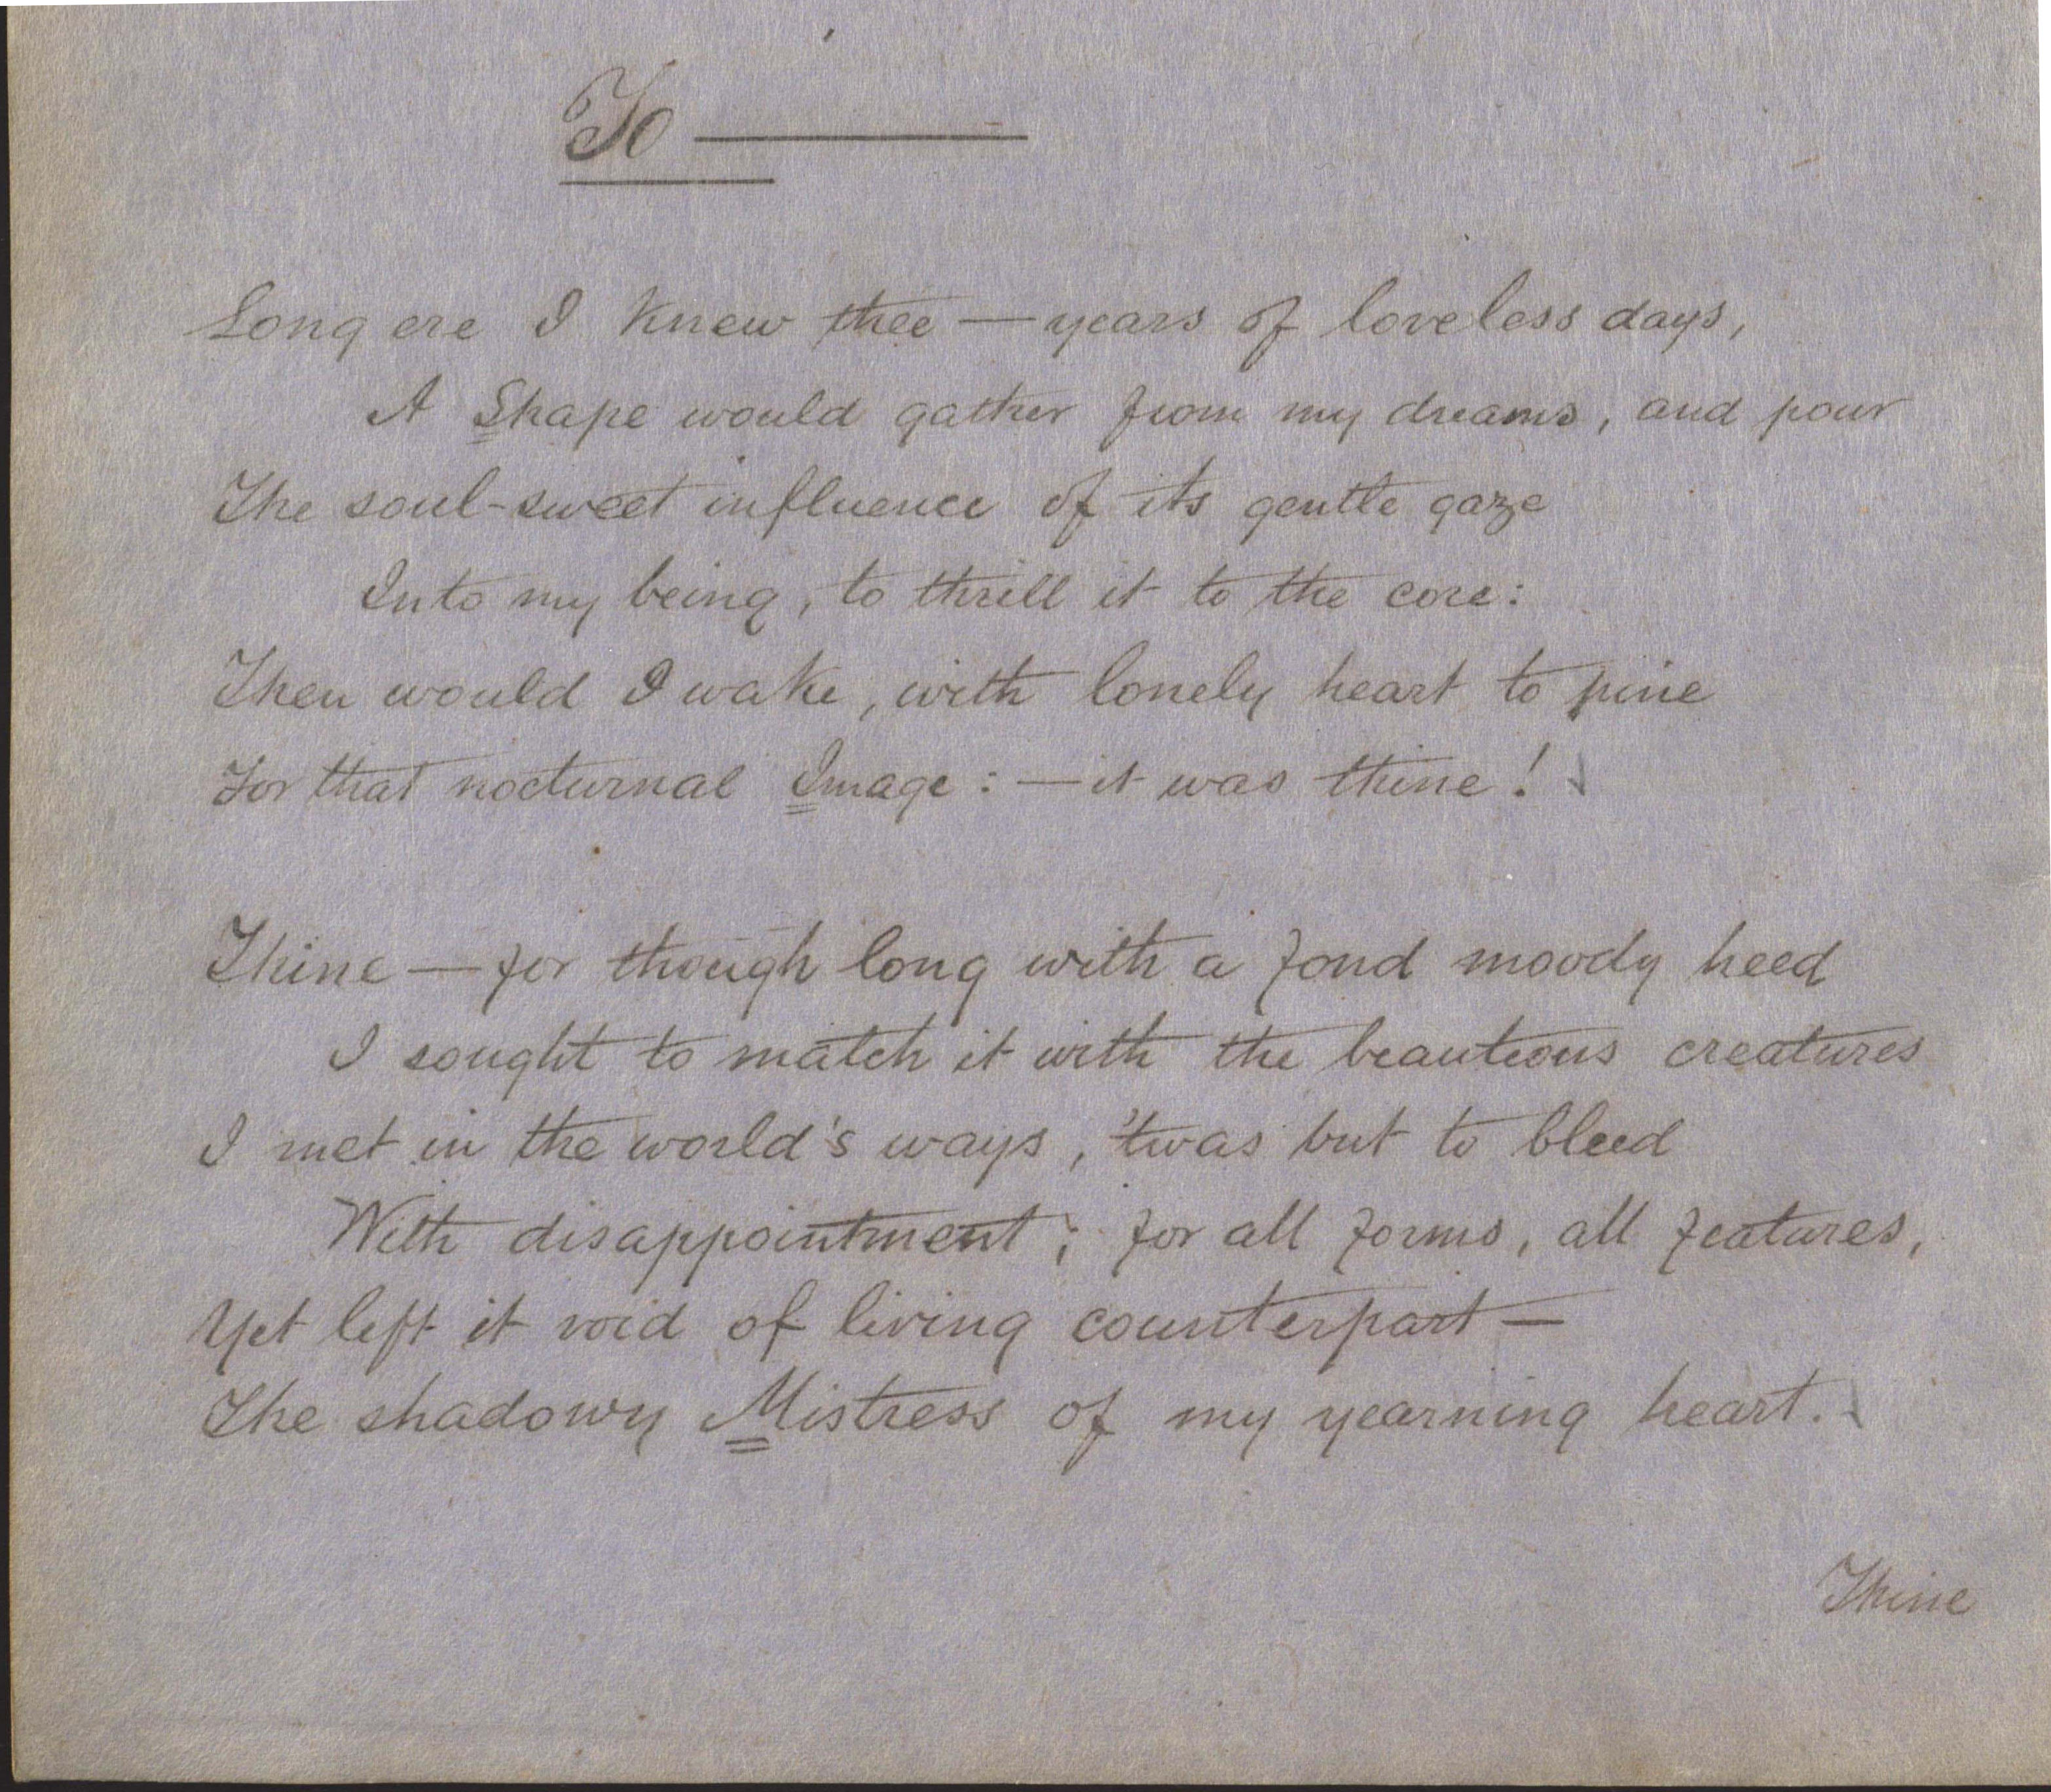 To ———
Long ere I knew thee — years of loveless days,
A Shape would gather from my dreams, and pour
The soul-sweet influence of its gentle gaze
Into my being, to thrill it to the core:
Then would I wake, with lonely heart to pine
For that nocturnal Image: — it was thine!
Thine — for though long with a fond moody heed
I sought to match it with the beauteous creatures
I met in the world's ways, 'twas but to bleed
With disappointment; for all forms, all features,
Yet left it void of living counterpart —
The shadowy Mistress of my yearning heart.
Thine